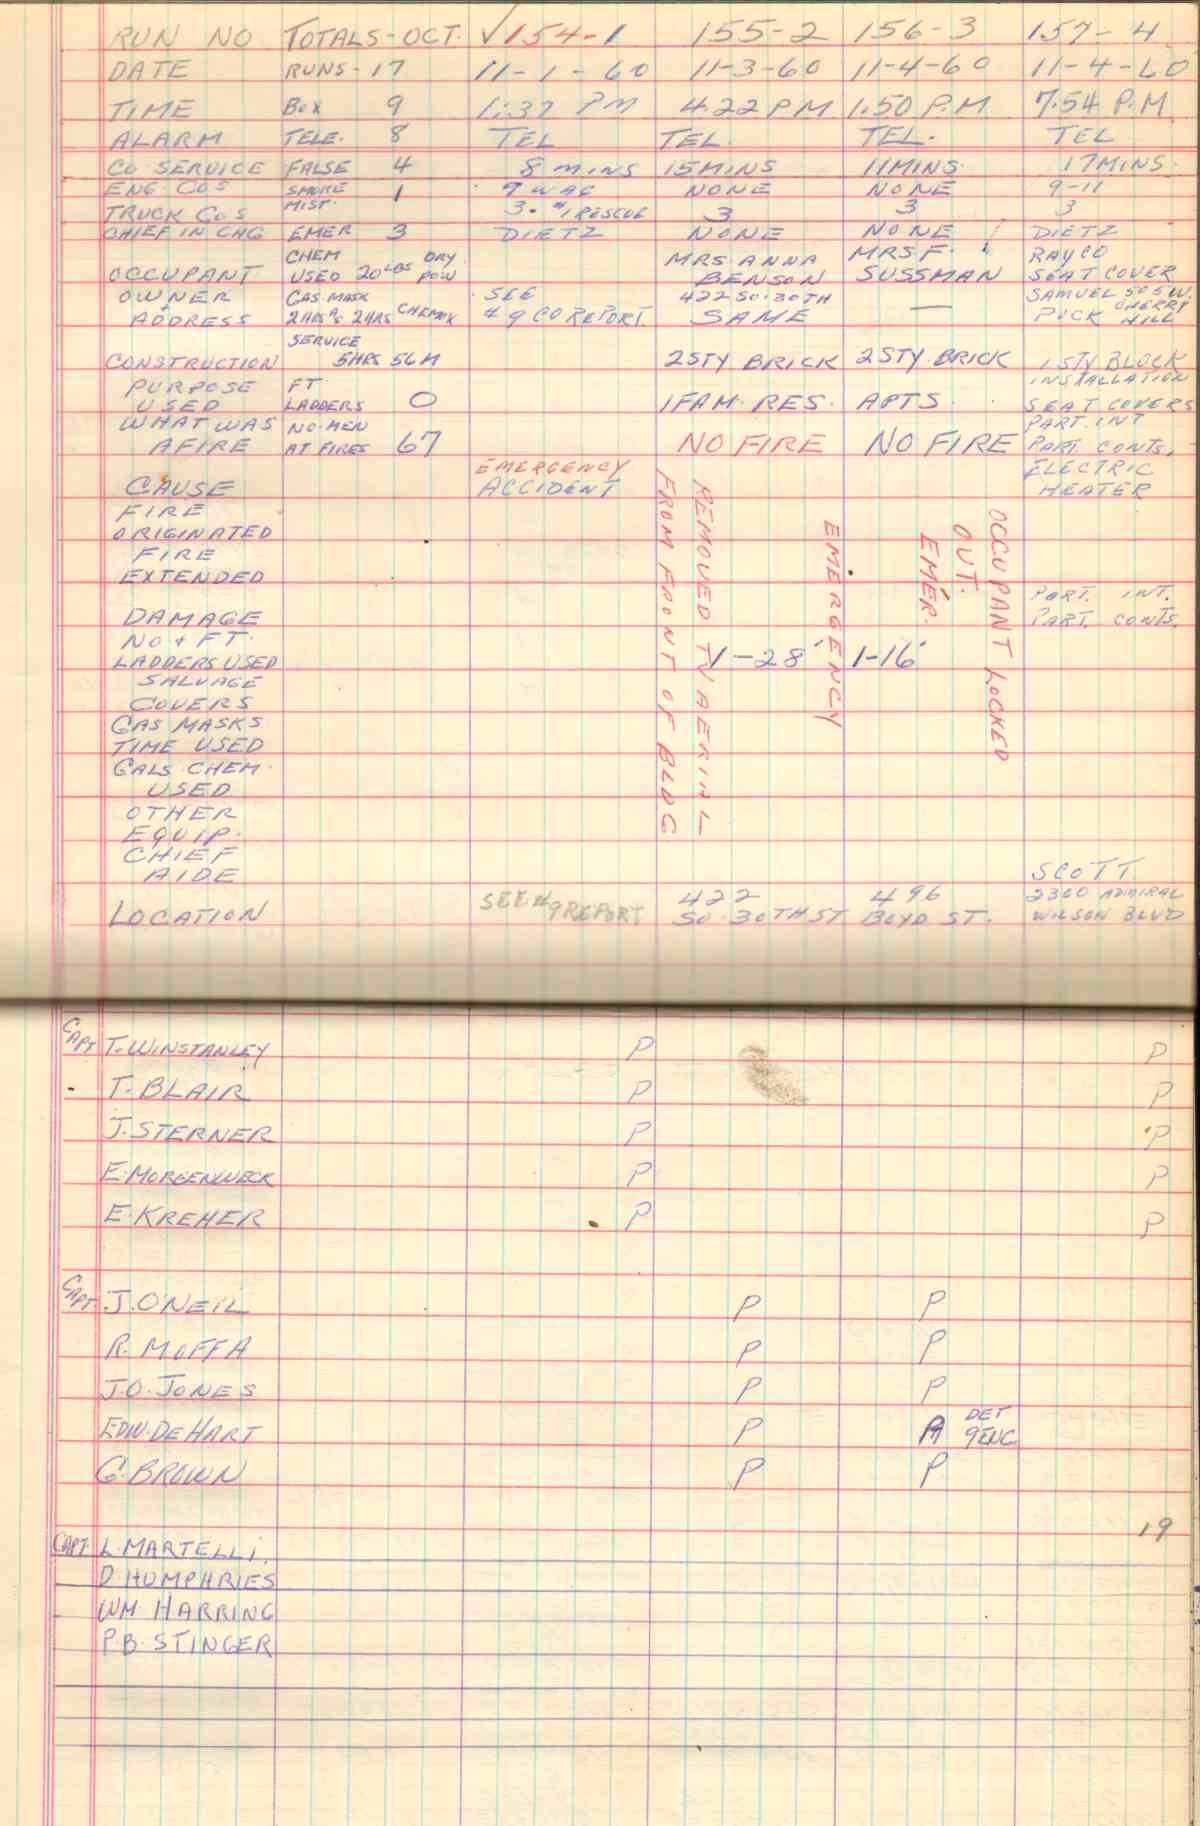 RUN NO TOTALS-OCT. √154-1 155-2 156-3 157-4
DATE RUNS-17 11-1-60 11-3-60 11-4-60 11-4-60
TIME BOX 9 1:37 PM 4:22 PM 1:50 P.M 7:54 P.M
ALARM TELE. 8 TEL TEL. TEL. TEL
CO SERVICE FALSE 4 8 MINS 15 MINS 11 MINS. 17 MINS.
ENG COS SMOKE 1 9 WAG NONE NONE 9-11
MIST.
TRUCK COS 3. #1 RESCUE 3 3 3
CHIEF IN CHG EMER 3 DIETZ NONE NONE DIETZ
CHEM DRY MRS. ANNA MRS. F. RAYCO
OCCUPANT USED 20LBS POW BENSON SUSSMAN SEAT COVER
OWNER GAS MASK SEE 422 SO. 30TH SAMUEL 505 W.
ADDRESS 2HRS 2HRS CHEMOX #9 CO REPORT. SAME — PICK CHERRY HILL
SERVICE
CONSTRUCTION 5HRS 56M 2STY BRICK 2STY. BRICK 1 STY BLOCK
PURPOSE FT. INSTALLATION
USED LADDERS 0 1 FAM. RES. APTS. SEAT COVERS
WHAT WAS NO. MEN PART. INT
AFIRE AT FIRES 67 NO FIRE NO FIRE PART. CONTS.
EMERGENCY ELECTRIC
CAUSE ACCIDENT HEATER
FIRE
ORIGINATED
FIRE
EXTENDED
REMOVED TV AERIAL
FROM FRONT OF BLDG
EMERGENCY
OCCUPANT LOCKED
OUT.
EMER.
PART. INT.
DAMAGE PART. CONTS.
NO & FT.
LADDERS USED 1-28' 1-16'
SALVAGE
COVERS
GAS MASKS
TIME USED
GALS. CHEM.
USED
OTHER
EQUIP.
CHIEF
AIDE SCOTT
SEE #9 REPORT 422 496 2360 ADMIRAL
LOCATION SO. 30TH ST BOYD ST. WILSON BLVD
CAPT T. WINSTANLEY P P
T. BLAIR P P
J. STERNER P P
E. MORGENWECK P P
E. KREHER P P
CAPT J. O'NEIL P P
R. MOFFA P P
J.O. JONES P P
EDW. DEHART P A DET 9 ENG
G. BROWN P P
19
CAPT. L. MARTELLI.
D. HUMPHRIES
WM. HARRING
P.B. STINGER